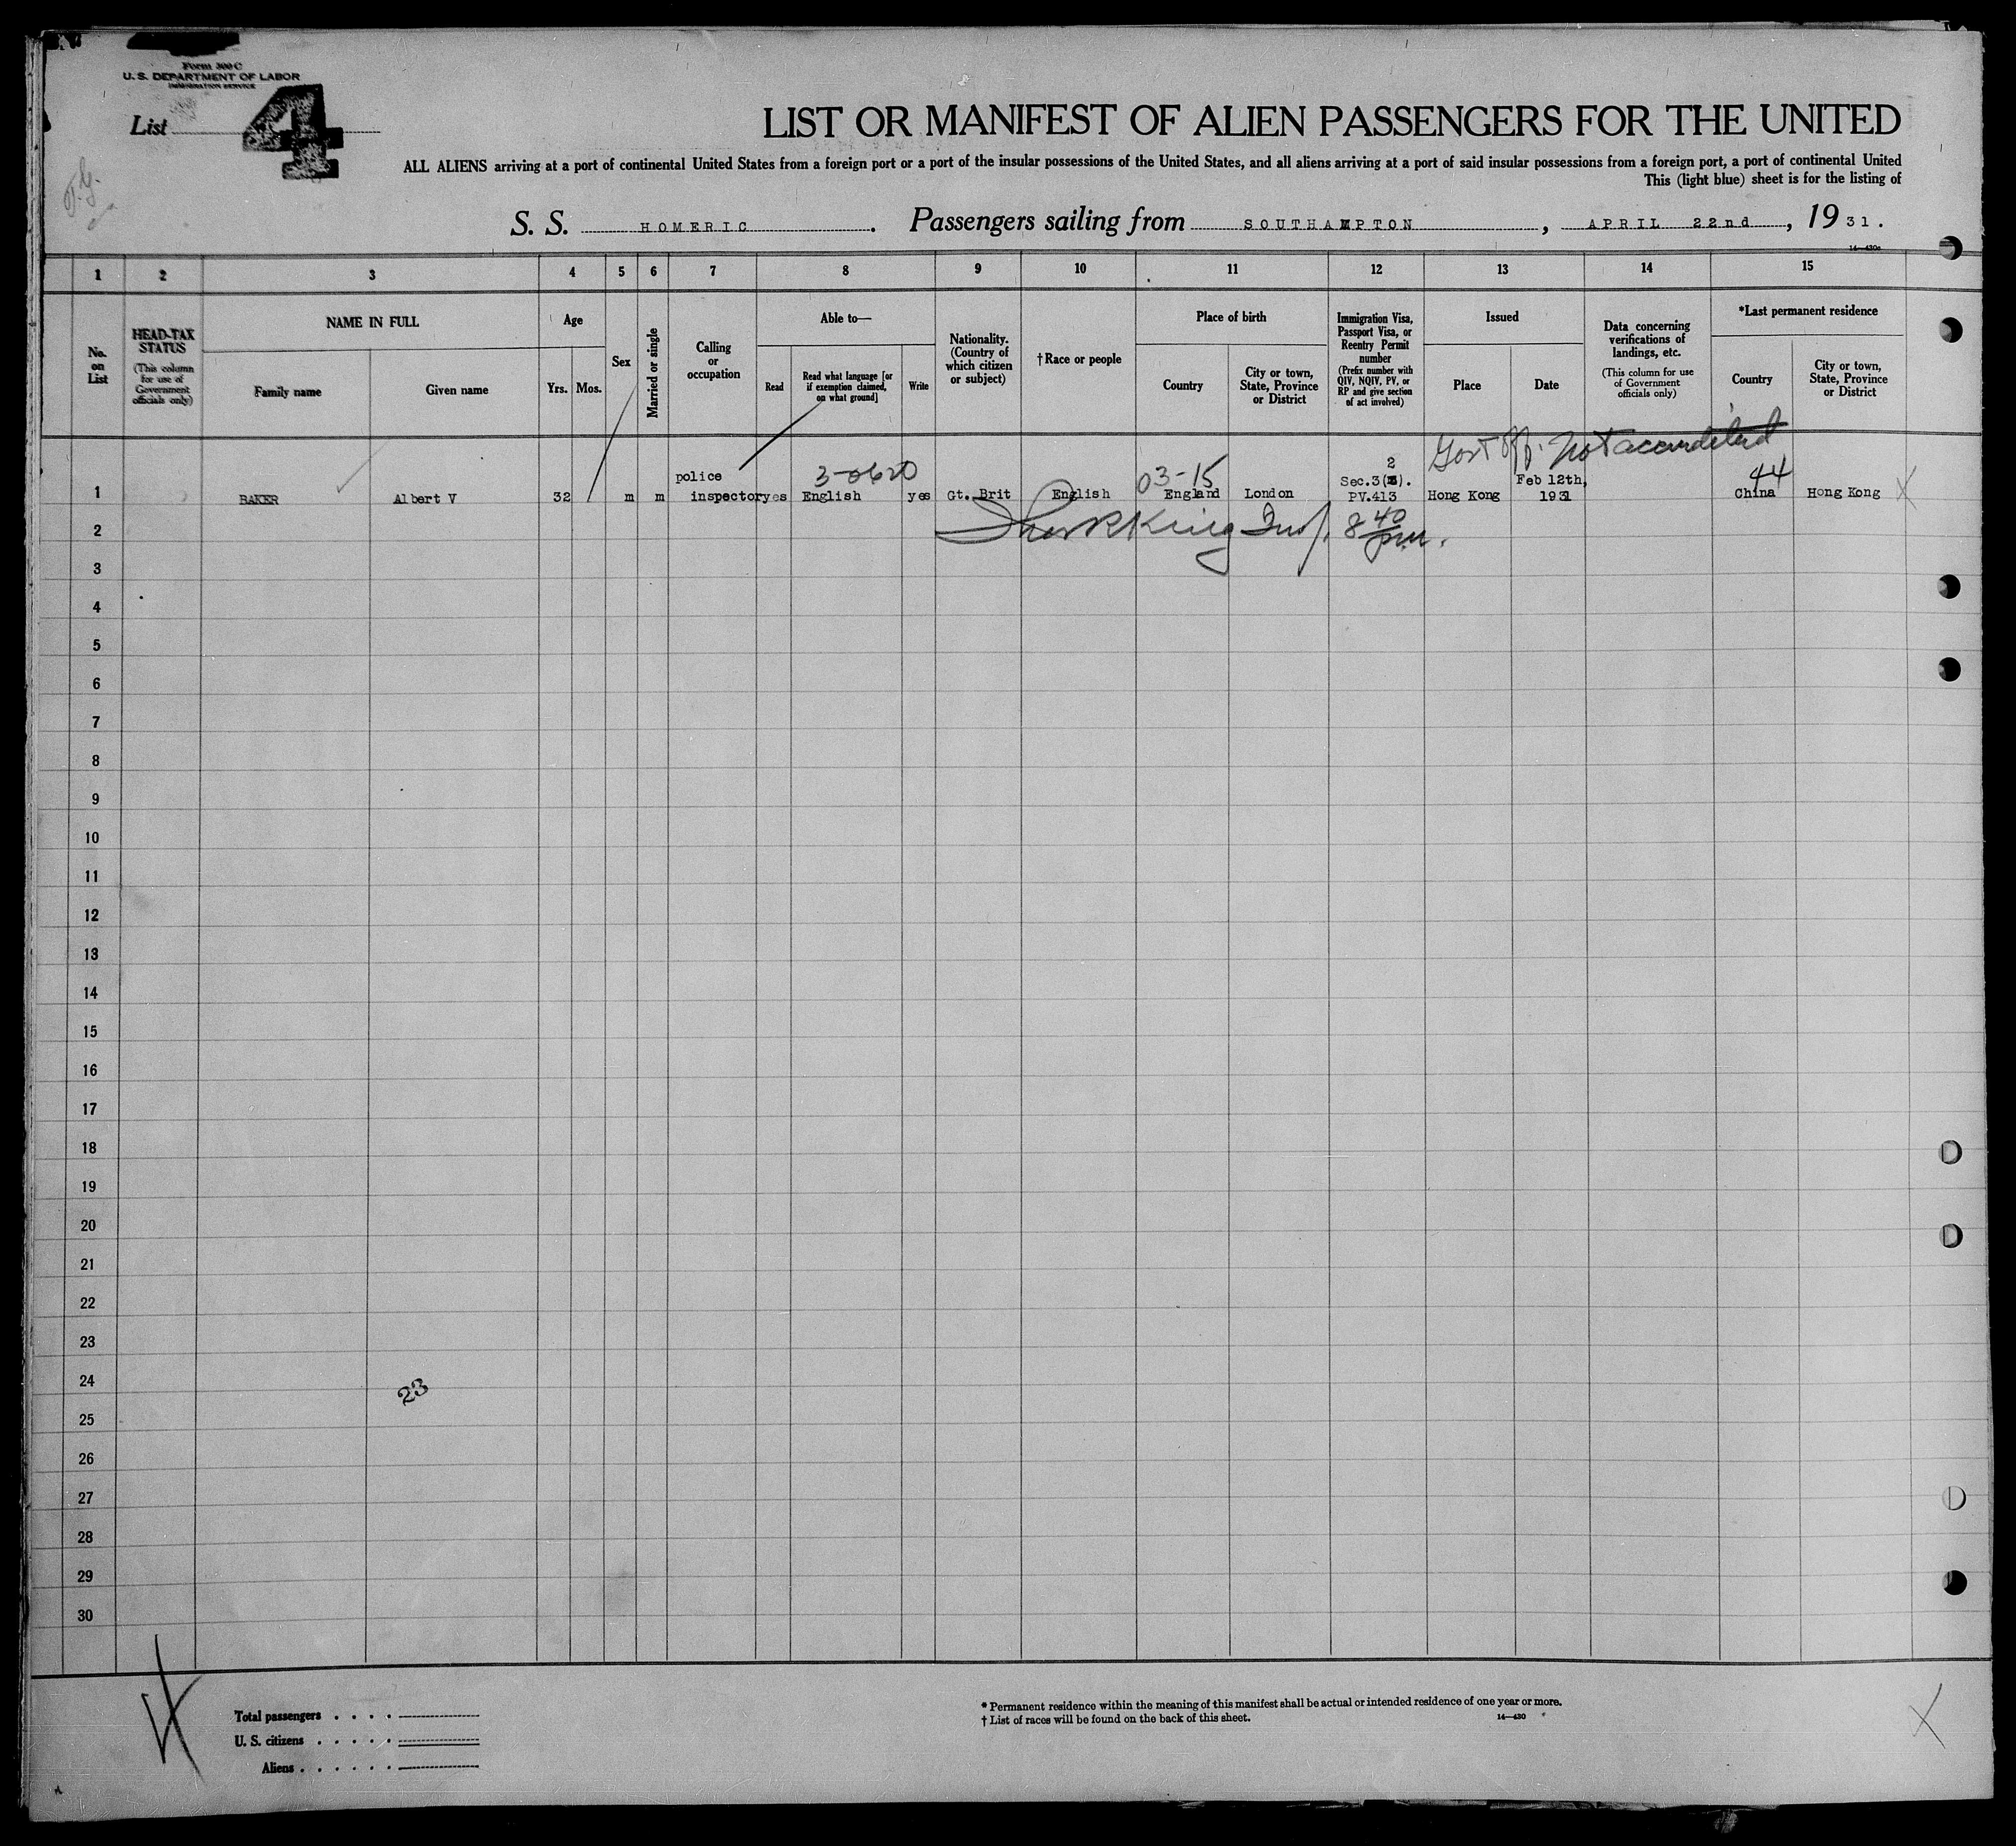 Form 300 C
U. S. DEPARTMENT OF LABOR
IMMIGRATION SERVICE
List 4
LIST OR MANIFEST OF ALIEN PASSENGERS FOR THE UNITED
ALL ALIENS arriving at a port of continental United States from a foreign port or a port of the insular possessions of the United States, and all aliens arriving at a port of said insular possessions from a foreign port, a port of continental United
This (light blue) sheet is for the listing of
S. S. HOMERIC. Passengers sailing from SOUTHAMPTON, APRIL 22nd, 1931.
14—430a
1 2 3 4 5 6 7 8 9 10 11 12 13 14 15
No. on List
HEAD-TAX STATUS
(This column for use of Government officials only)
NAME IN FULL
Family name
Given name
Age
Yrs. Mos.
Sex
Married or single
Calling or occupation
Able to—
Read
Read what language [or if exemption claimed, on what ground]
Write
Nationality. (Country of which citizen or subject)
†Race or people
Place of birth
Country
City or town, State, Province or District
Immigration Visa, Passport Visa, or Reentry Permit number
(Prefix number with QIV, NQIV, PV, or RP and give section of act involved)
Issued
Place
Date
Data concerning verifications of landings, etc.
(This column for use of Government officials only)
*Last permanent residence
Country
City or town, State, Province or District
Govt Off. Not accredited
3-0620
03-15
2
44
1 BAKER Albert V 32 m m police inspector yes English yes Gt. Brit English England London Sec.3(2). PV.413 Hong Kong Feb 12th, 1931 China Hong Kong X
2 King Insp. 8 40 pm.
3
4
5
6
7
8
9
10
11
12
13
14
15
16
17
18
19
20
21
22
23
24
23
25
26
27
28
29
30
Total passengers
U. S. citizens
Aliens
* Permanent residence within the meaning of this manifest shall be actual or intended residence of one year or more.
† List of races will be found on the back of this sheet.
14—430
X